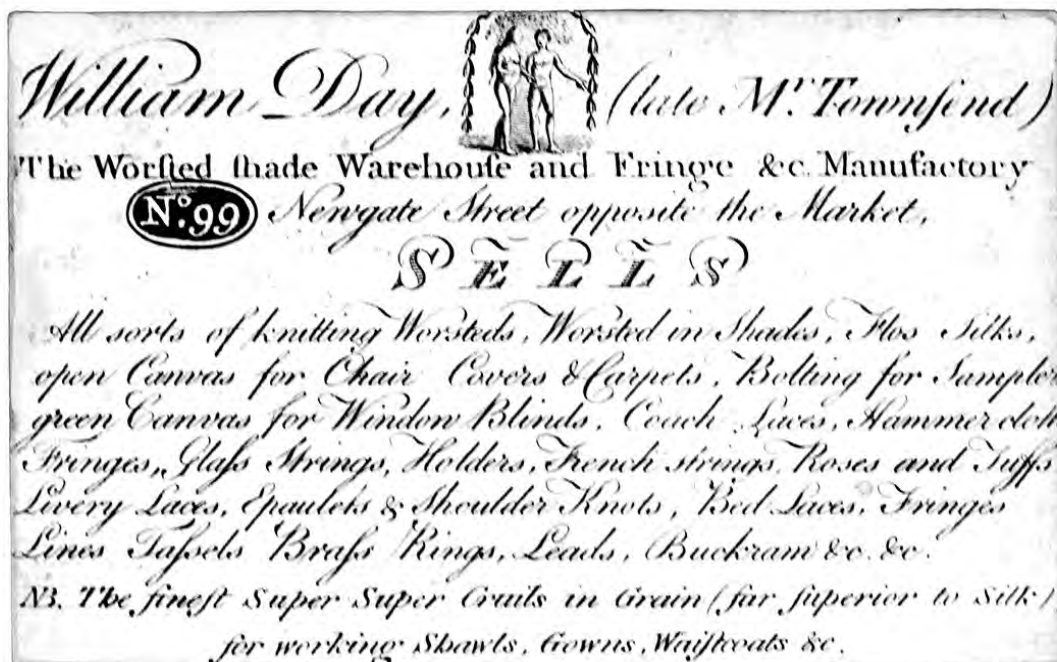 William Day, (late Mr. Townſend)
The Worſted ſhade Warehouſe and Fringe &c. Manufactory
No. 99 Newgate Street opposite the Market,
SELLS
All sorts of knitting Worsteds, Worsted in Shades, Flos Silks,
open Canvas for Chair Covers & Carpets, Bolting for Sampler
green Canvas for Window Blinds, Coach Laces, Hammer cloth
Fringes, Glaſs Strings, Holders, French strings, Roses and Tuffs
Livery Laces, Epaulets & Shoulder Knots, Bed Laces, Fringes
Lines Taſsels Braſs Rings, Leads, Buckram &c. &c.
NB. The fineſt Super Super Cruils in Grain (far ſuperior to Silk)
for working Shawls, Gowns, Waiſtcoats &c.